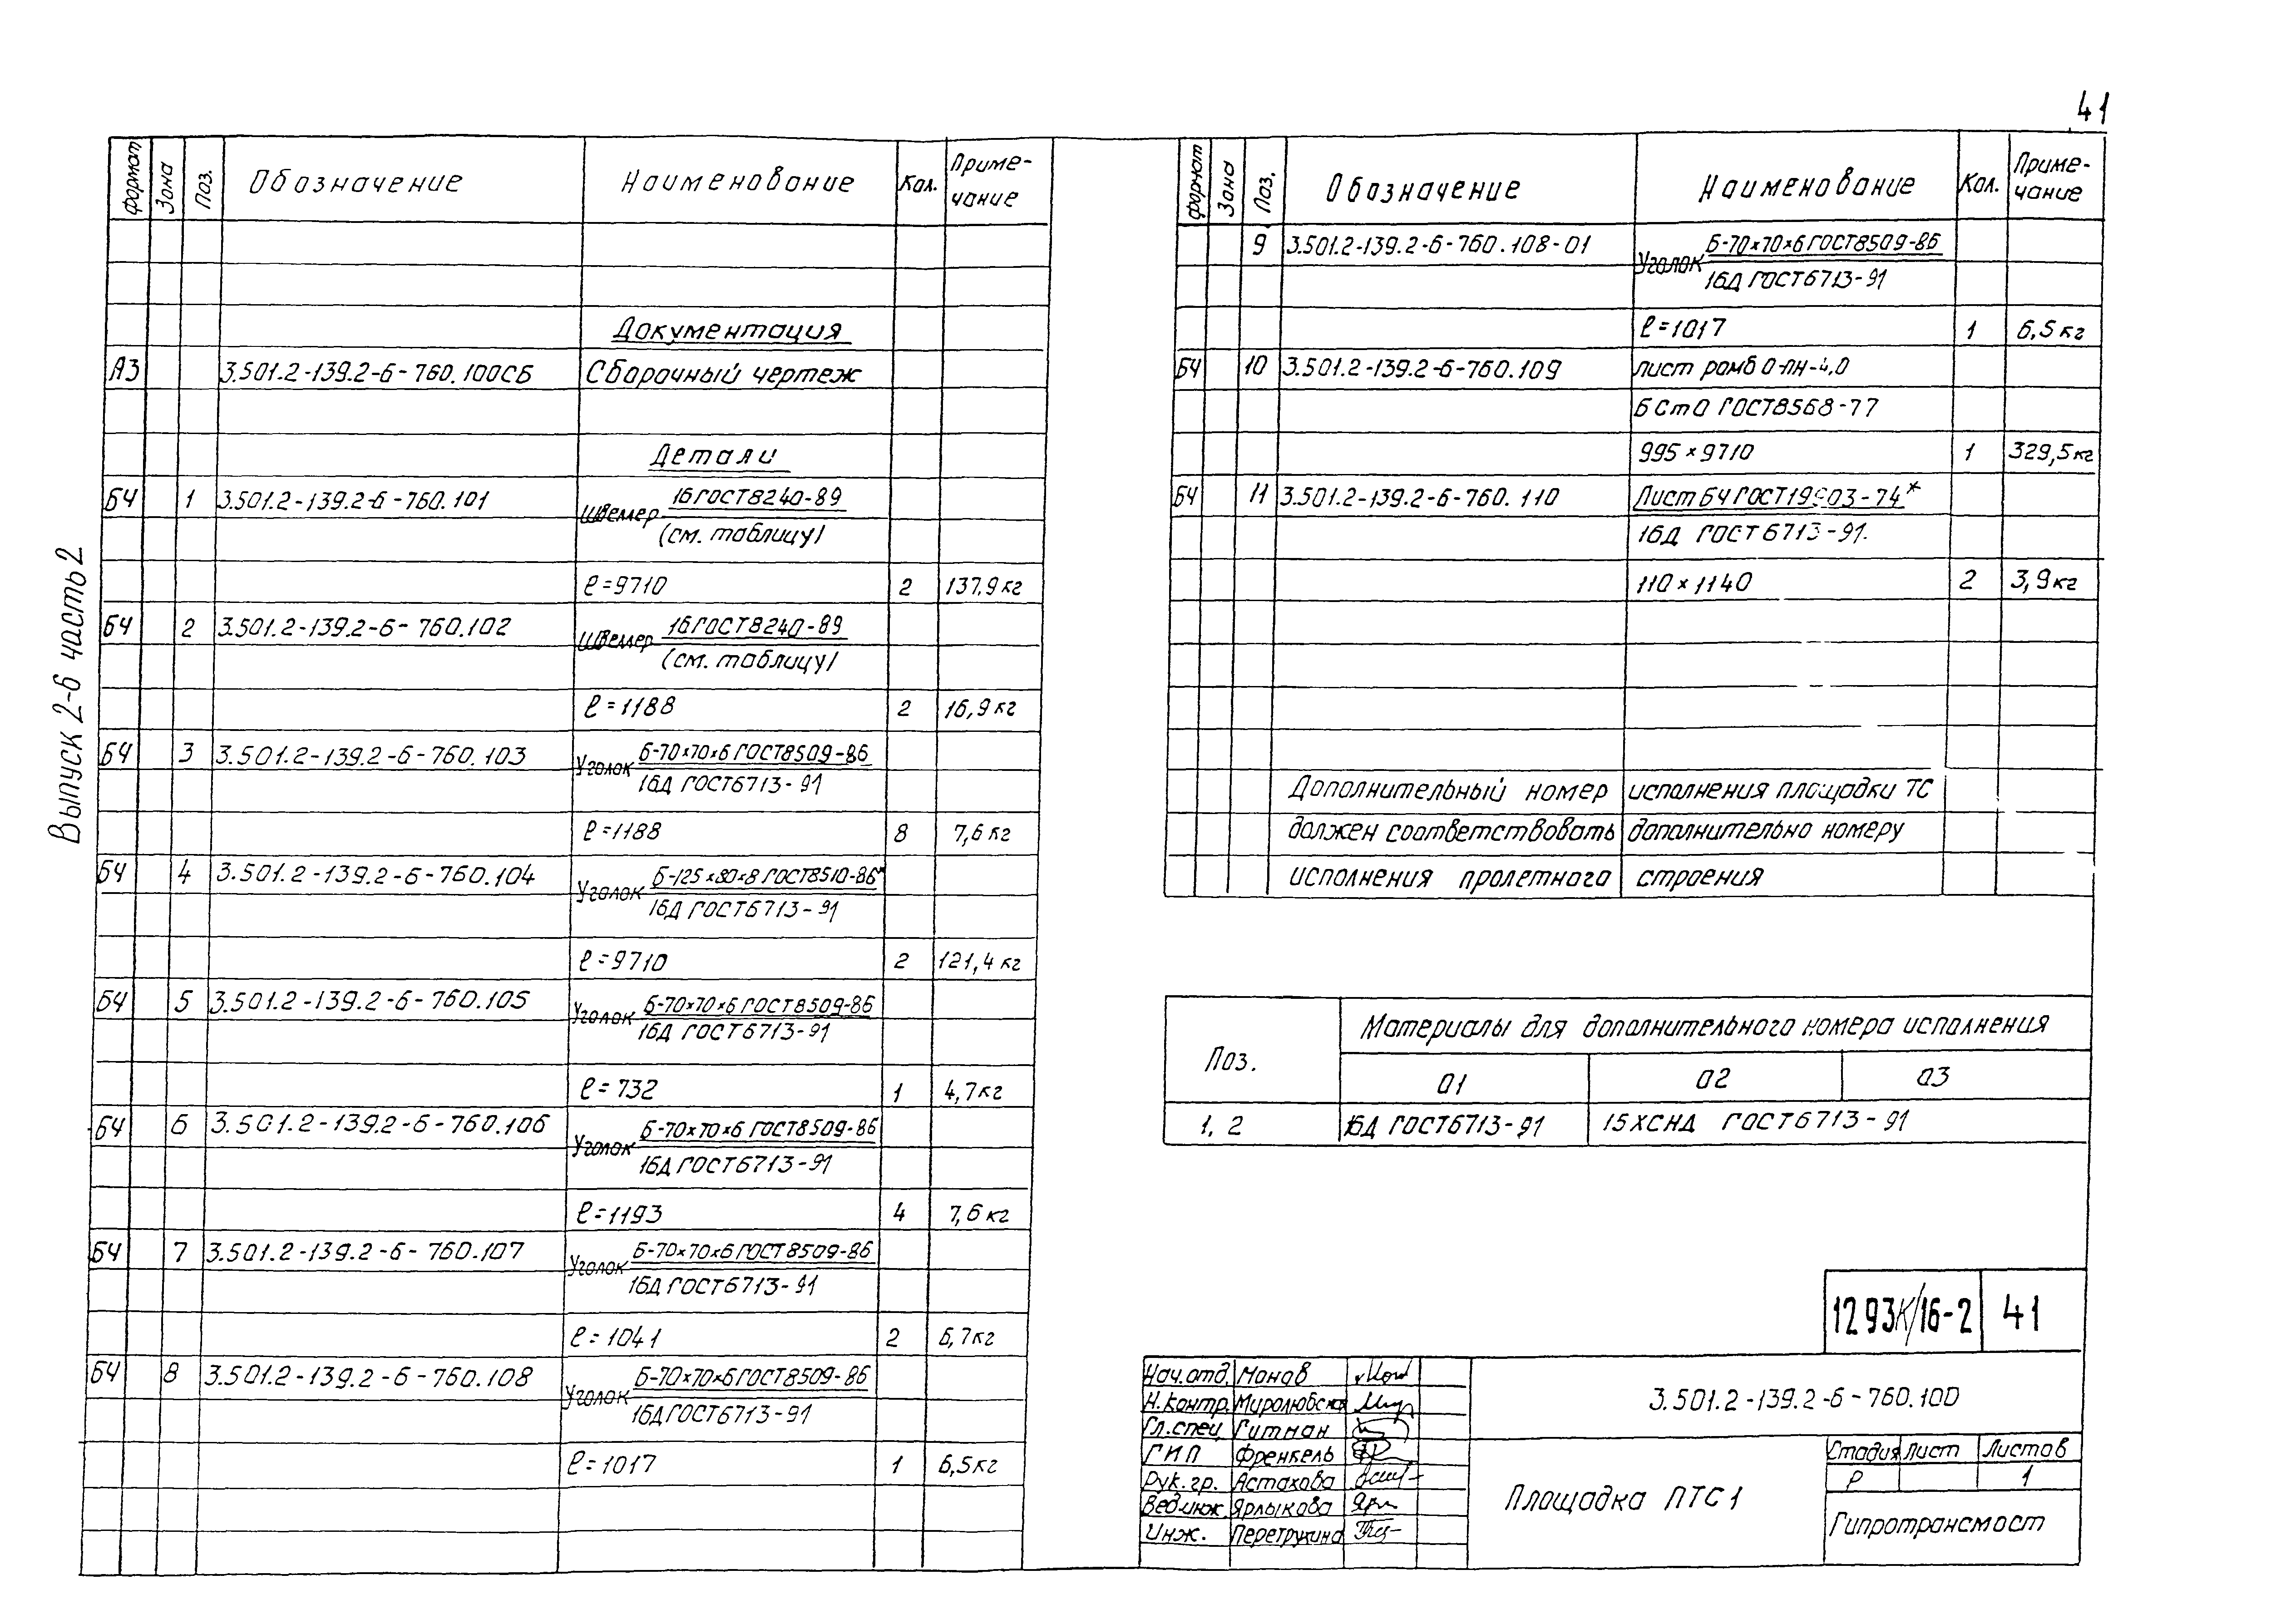 41
Выпуск 2-6 часть 2
Формат Зона Поз. Обозначение Наименование Кол. Приме-
чание
Документация
А3 3.501.2-139.2-6-760.100СБ Сборочный чертеж
Детали
БЧ 1 3.501.2-139.2-6-760.101 Швеллер 16 ГОСТ 8240-89
(см. таблицу)
ℓ=9710 2 137,9 кг
БЧ 2 3.501.2-139.2-6-760.102 Швеллер 16 ГОСТ 8240-89
(см. таблицу)
ℓ=1188 2 16,9 кг
БЧ 3 3.501.2-139.2-6-760.103 Уголок Б-70×70×6 ГОСТ 8509-86
16Д ГОСТ 6713-91
ℓ=1188 8 7,6 кг
БЧ 4 3.501.2-139.2-6-760.104 Уголок Б-125×80×8 ГОСТ 8510-86*
16Д ГОСТ 6713-91
ℓ=9710 2 121,4 кг
БЧ 5 3.501.2-139.2-6-760.105 Уголок Б-70×70×6 ГОСТ 8509-86
16Д ГОСТ 6713-91
ℓ=732 1 4,7 кг
БЧ 6 3.501.2-139.2-6-760.106 Уголок Б-70×70×6 ГОСТ 8509-86
16Д ГОСТ 6713-91
ℓ=1193 4 7,6 кг
БЧ 7 3.501.2-139.2-6-760.107 Уголок Б-70×70×6 ГОСТ 8509-86
16Д ГОСТ 6713-91
ℓ=1041 2 6,7 кг
БЧ 8 3.501.2-139.2-6-760.108 Уголок Б-70×70×6 ГОСТ 8509-86
16Д ГОСТ 6713-91
ℓ=1017 1 6,5 кг
Формат Зона Поз. Обозначение Наименование Кол. Приме-
чание
9 3.501.2-139.2-6-760.108-01 Уголок Б-70×70×6 ГОСТ 8509-86
16Д ГОСТ 6713-91
ℓ=1017 1 6,5 кг
БЧ 10 3.501.2-139.2-6-760.109 лист ромб О-ПН-4,0
БСт0 ГОСТ 8568-77
995×9710 1 329,5 кг
БЧ 11 3.501.2-139.2-6-760.110 Лист Б4 ГОСТ 19903-74*
16Д ГОСТ 6713-91.
110×1140 2 3,9 кг
Дополнительный номер исполнения площадки ТС
должен соответствовать дополнительно номеру
исполнения пролетного строения
Поз. Материалы для дополнительного номера исполнения
01 02 03
1, 2 16Д ГОСТ 6713-91 15ХСНД ГОСТ 6713-91
1293К/16-2 41
Нач.отд. Монов
Н.контр. Миролюбская
Гл.спец Гитман
ГИП Френкель
Рук.гр. Астахова
Вед.инж. Ярлыкова
Инж. Перетрухина
3.501.2-139.2-6-760.100
Площадка ПТС1
Стадия Лист Листов
Р 1
Гипротрансмост